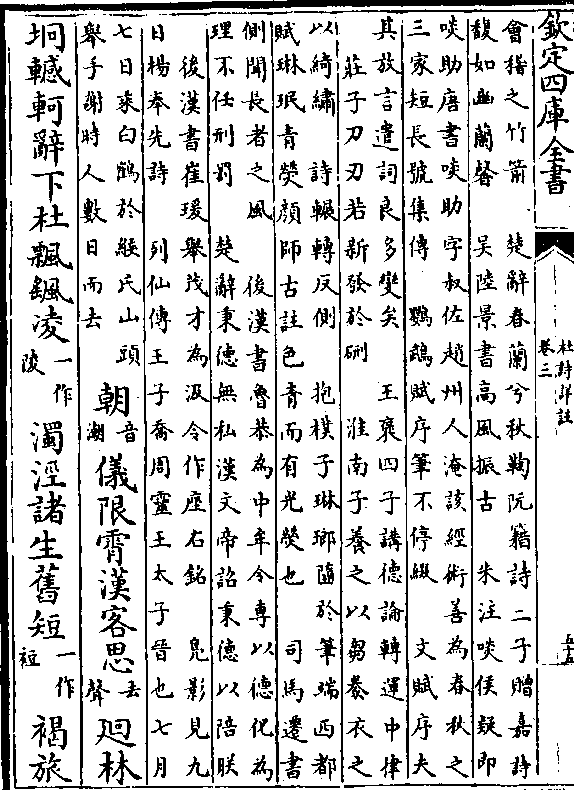 欽定四庫全書
杜詩詳註
卷三
五十五
會稽之竹箭　楚辭春蘭兮秋鞠阮籍詩二子贈嘉詩
馥如幽蘭馨　吳陸景書高風振古　朱注啖侯疑即
啖助唐書啖助字叔佐趙州人淹該經術善為春秋之
三家短長號集傳　鸚鵡賦序筆不停綴　文賦序夫
其放言遣詞良多變矣　王褒四子講德論轉運中律
莊子刀刃若新發於硎　淮南子養之以芻豢衣之
以綺繡　詩輾轉反側　抱樸子琳瑯隨於筆端西都
賦琳珉青熒顔師古註色青而有光熒也　司馬遷書
側聞長者之風　後漢書魯恭為中牟令專以德化為
理不任刑罰　楚辭秉德無私漢文帝詔秉德以陪朕
後漢書崔瑗舉茂才為汲令作座右銘　鳬影見九
日楊奉先詩　列仙傳王子喬周靈王太子晉也七月
七日乘白鶴於緱氏山頭
舉手謝時人數日而去
朝音潮儀限霄漢客思去聲廻林
坰轗軻辭下杜飄颻凌一作陵濁涇諸生舊短一作裋褐旅